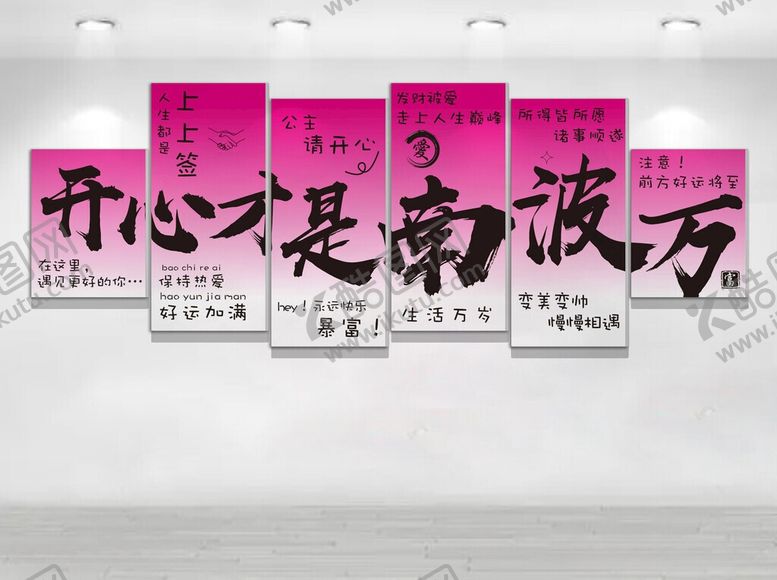 开心才是南波万
在这里,
遇见更好的你…
人生都是
上上签
bao chi re ai
保持热爱
hao yun jia man
好运加满
公主
请开心
hey！永远快乐
暴富！
发财被爱
走上人生巅峰
愛
生活万岁
所得皆所愿
诸事顺遂
变美变帅
慢慢相遇
注意！
前方好运将至
富
酷图网
www.ikutu.com